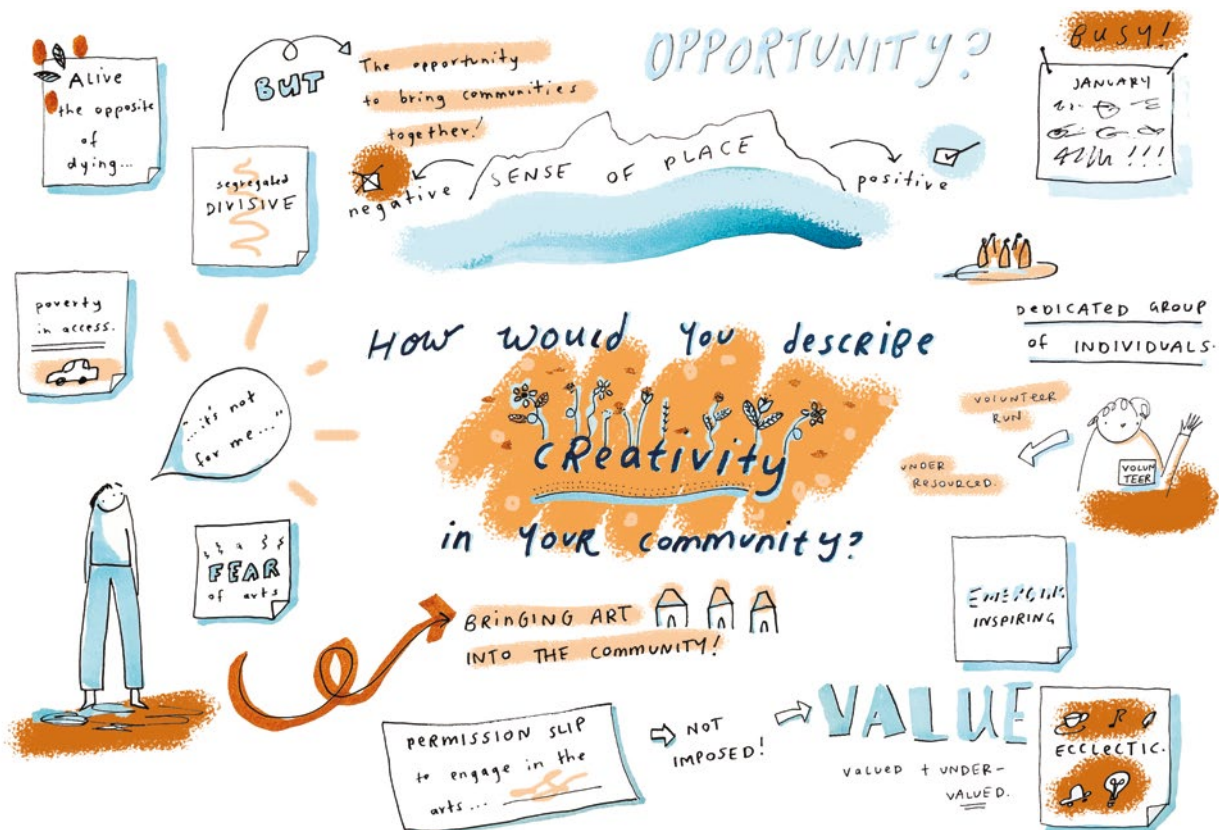 Alive
the opposite
of
dying...
BUT
The opportunity
to bring communities
together!
OPPORTUNITY?
BUSY!
JANUARY
!!!
segregated
DIVISIVE
negative
SENSE OF PLACE
positive
poverty
in access.
"...it's not
for me..."
HOW WOULD YOU DESCRIBE
CREATIVITY
in YOUR community?
DEDICATED GROUP
of INDIVIDUALS.
VOLUNTEER
RUN
UNDER
RESOURCED.
VOLUN
TEER
FEAR
of arts
BRINGING ART
INTO THE COMMUNITY!
EMERGING
INSPIRING
PERMISSION SLIP
to engage in the
arts...
NOT
IMPOSED!
VALUE
VALUED + UNDER-
VALUED.
ECCLECTIC.